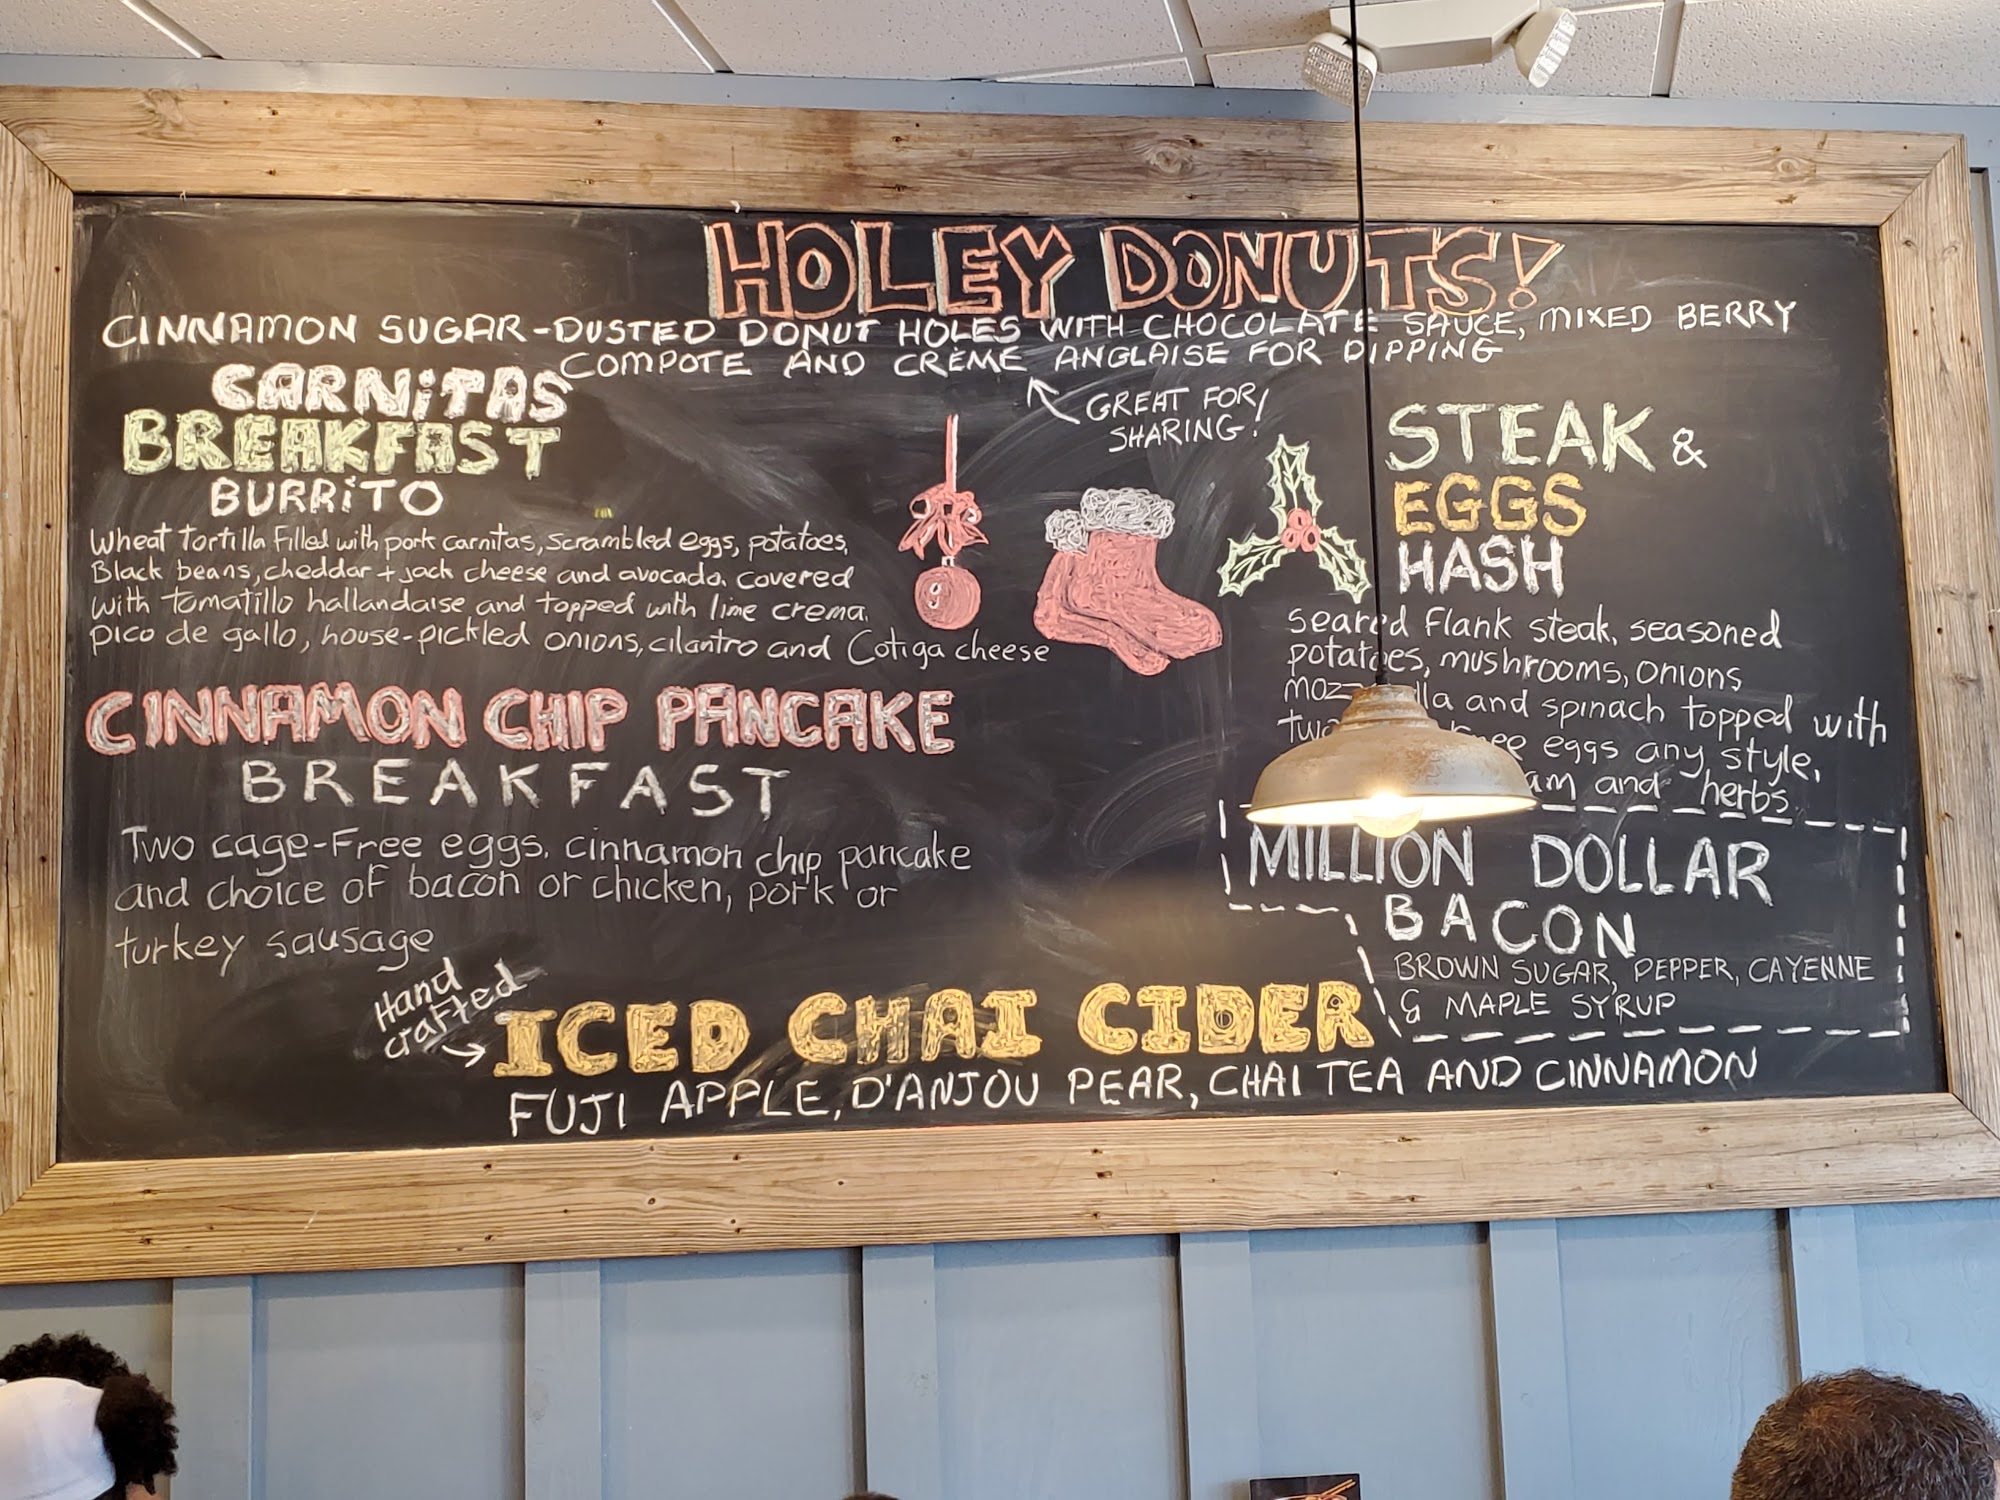 HOLEY DONUTS!
CINNAMON SUGAR-DUSTED DONUT HOLES WITH CHOCOLATE SAUCE, MIXED BERRY
COMPOTE AND CRÈME ANGLAISE FOR DIPPING
GREAT FOR
SHARING!
CARNiTAS
BREAKFAST
BURRiTO
Wheat tortilla filled with pork carnitas, scrambled eggs, potatoes,
Black beans, cheddar + jack cheese and avocado. covered
with tomatillo hallandaise and topped with lime crema,
pico de gallo, house-pickled onions, cilantro and Cotiga cheese
CINNAMON CHIP PANCAKE
BREAKFAST
Two cage-free eggs, cinnamon chip pancake
and choice of bacon or chicken, pork or
turkey sausage
STEAK &
EGGS
HASH
seared flank steak, seasoned
potatoes, mushrooms, onions
and spinach topped with
eggs any style,
and herbs
MILLION DOLLAR
BACON
BROWN SUGAR, PEPPER, CAYENNE
& MAPLE SYRUP
Hand
crafted
ICED CHAI CIDER
FUJI APPLE, D'ANJOU PEAR, CHAI TEA AND CINNAMON